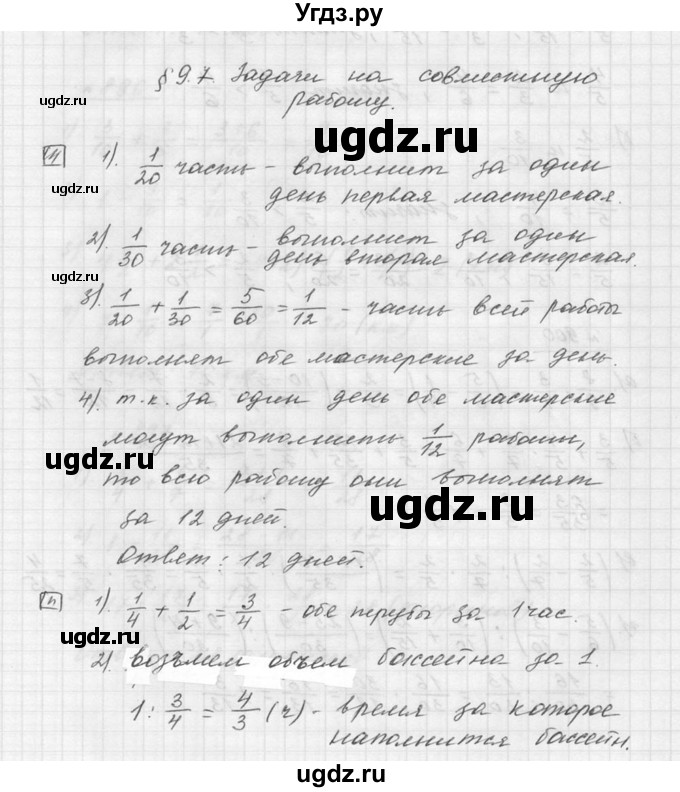 Угдз.ру
§ 9.7. Задачи на совместную
работу.
ugdz.ru
ugdz.ru
П 1). 1/20 часть - выполнит за один
день первая мастерская.
2). 1/30 часть - выполнит за один
день вторая мастерская.
ugdz.ru
ugdz.ru
3). 1/20 + 1/30 = 5/60 = 1/12 - часть всей работы
выполнят обе мастерские за день.
4). т.к. за один день обе мастерские
могут выполнить 1/12 работы,
ugdz.ru
то всю работу они выполнят
за 12 дней.
ugdz.ru
Ответ: 12 дней.
П 1). 1/4 + 1/2 = 3/4 - обе трубы за 1 час.
ugdz.ru
2). возьмем объем бассейна за 1.
1 : 3/4 = 4/3 (ч) - время за которое
наполнится бассейн.
ugdz.ru
ugdz.ru